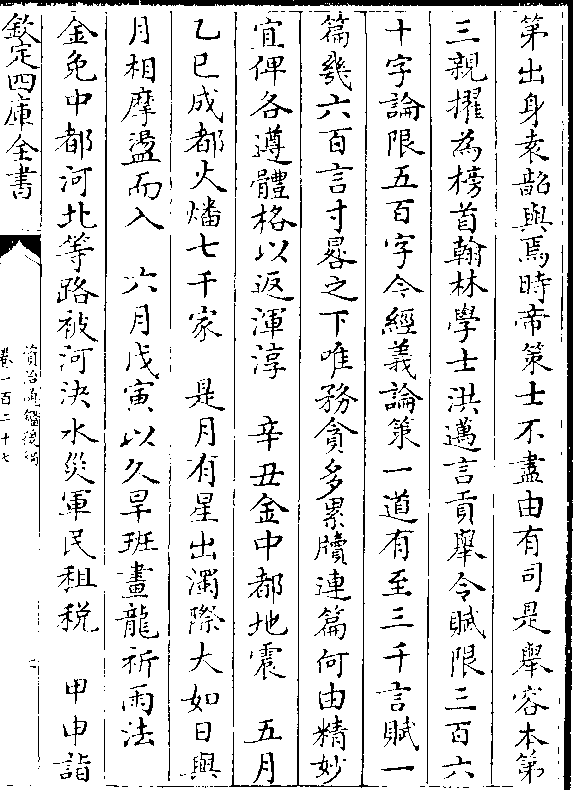 第出身袁韶與焉時帝策士不盡由有司是舉容本第
三親擢為榜首翰林學士洪邁言貢舉令賦限三百六
十字論限五百字今經義論策一道有至三千言賦一
篇幾六百言寸晷之下唯務貪多累牘連篇何由精妙
宜俾各遵體格以返渾淳　辛丑金中都地震　五月
乙巳成都火燔七千家　是月有星出濁際大如日與
月相摩盪而入　六月戊寅以久旱班畫龍祈雨法
金免中都河北等路被河決水災軍民租稅　甲申詣
欽定四庫全書
資治通鑑後編
卷一百二十七